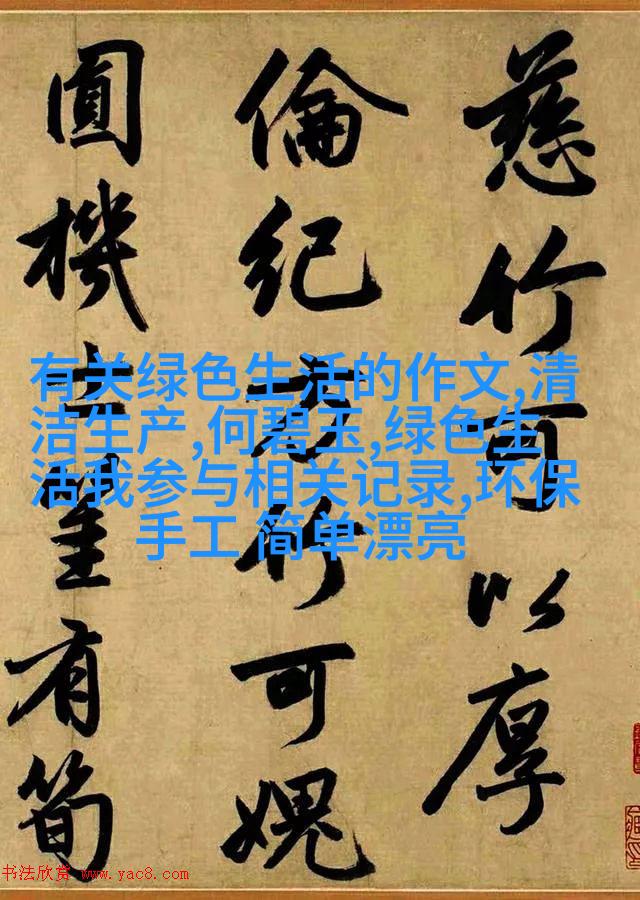 慈竹可以厚
倫紀竹可媿
圓機士有筍
有关绿色生活的作文,清
洁生产,何碧玉,绿色生
活我参与相关记录,环保
手工 简单漂亮
书法欣赏 www.yac8.com